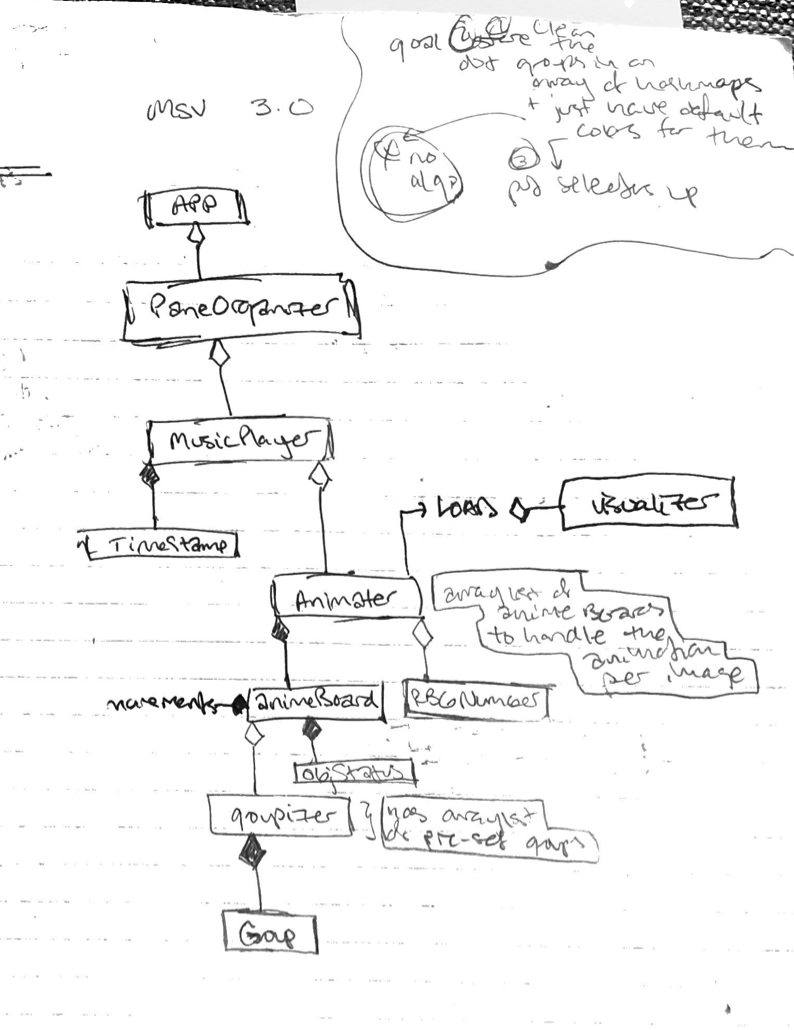 goal clean
the
dot groups in an
array of hashmaps
+ just have default
colors for them
MSV 3.0
* no
algo
3
put selectors up
t's
APP
PaneOrganizer
MusicPlayer
→ LOADS
Visualizer
TimeStamp
Animater
arraylist of
anime Boards
to handle the
animation
per image
movements
animeBoard
RBGNumber
objStatus
goupizer
} has arraylist
of pre-set goups
Goup